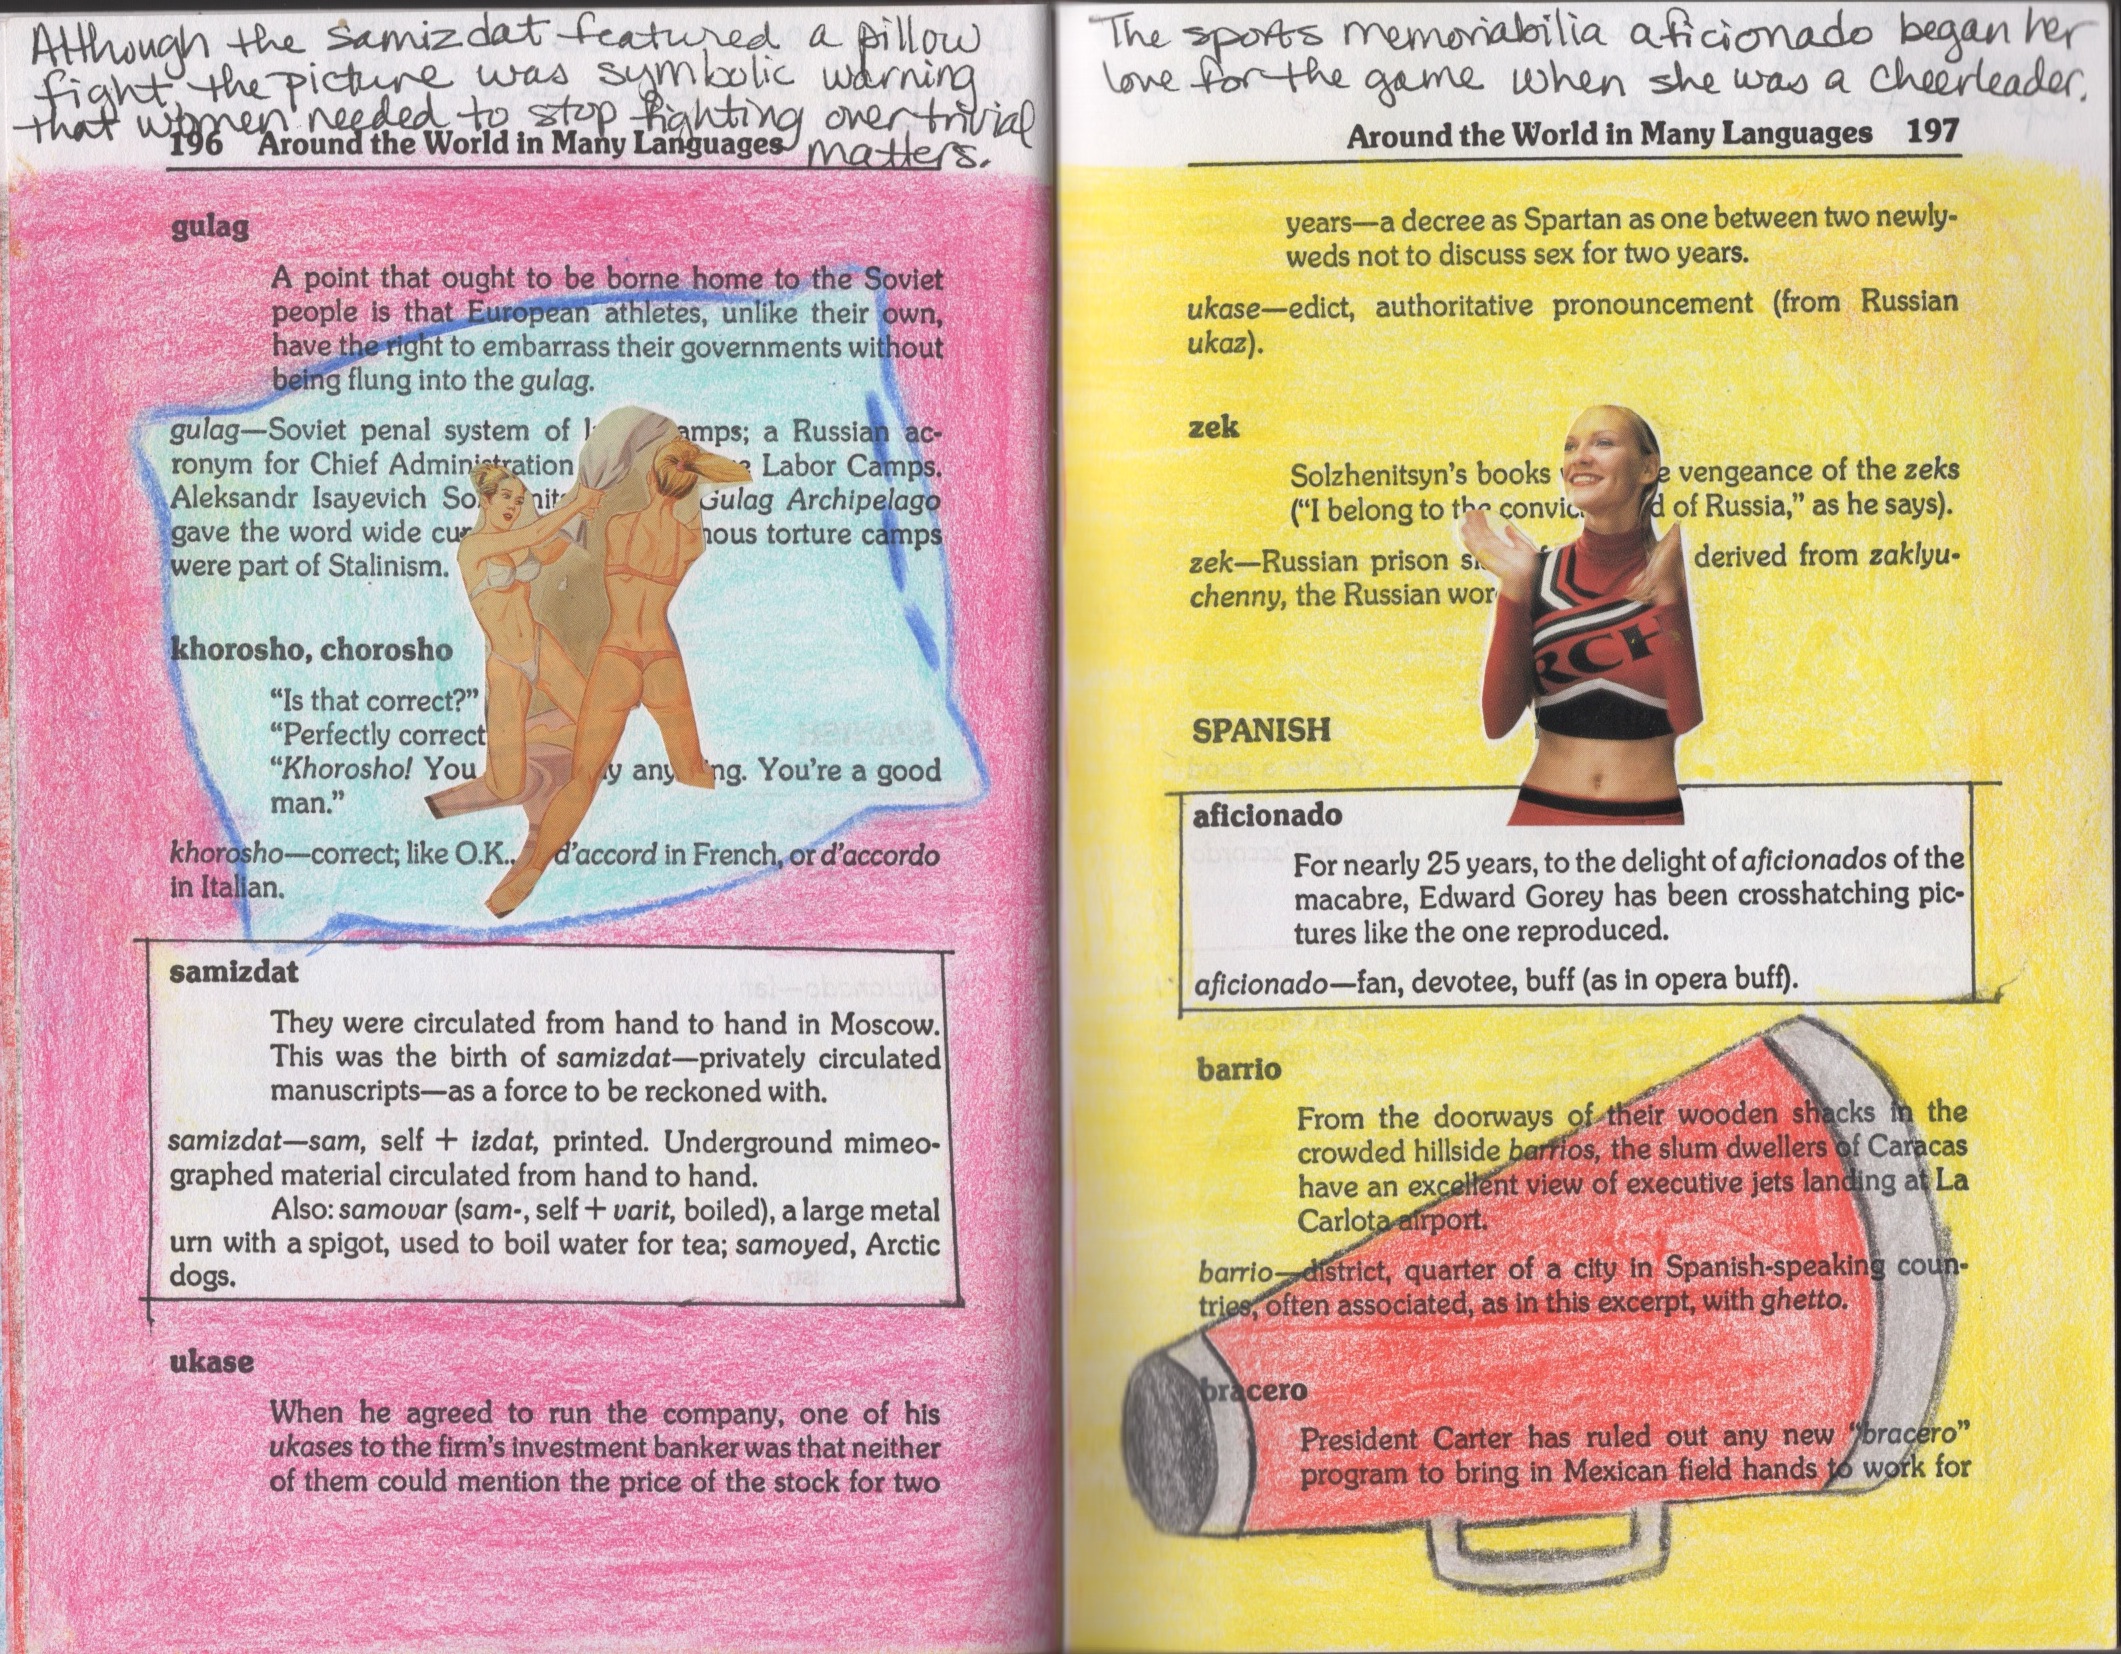 Although the samizdat featured a pillow
fight, the picture was symbolic warning
that women needed to stop fighting over trivial
matters.
196 Around the World in Many Languages
gulag
A point that ought to be borne home to the Soviet
people is that European athletes, unlike their own,
have the right to embarrass their governments without
being flung into the gulag.
gulag—Soviet penal system of l amps; a Russian ac-
ronym for Chief Administration Labor Camps.
Aleksandr Isayevich So nits Gulag Archipelago
gave the word wide cur nous torture camps
were part of Stalinism.
khorosho, chorosho
"Is that correct?"
"Perfectly correct
"Khorosho! You y any ng. You're a good
man."
khorosho—correct; like O.K., d'accord in French, or d'accordo
in Italian.
samizdat
They were circulated from hand to hand in Moscow.
This was the birth of samizdat—privately circulated
manuscripts—as a force to be reckoned with.
samizdat—sam, self + izdat, printed. Underground mimeo-
graphed material circulated from hand to hand.
Also: samovar (sam-, self + varit, boiled), a large metal
urn with a spigot, used to boil water for tea; samoyed, Arctic
dogs.
ukase
When he agreed to run the company, one of his
ukases to the firm's investment banker was that neither
of them could mention the price of the stock for two
The sports memoriabilia aficionado began her
love for the game when she was a cheerleader.
Around the World in Many Languages 197
years—a decree as Spartan as one between two newly-
weds not to discuss sex for two years.
ukase—edict, authoritative pronouncement (from Russian
ukaz).
zek
Solzhenitsyn's books e vengeance of the zeks
("I belong to the convic d of Russia," as he says).
zek—Russian prison sl derived from zaklyu-
chenny, the Russian wor
RCH
SPANISH
aficionado
For nearly 25 years, to the delight of aficionados of the
macabre, Edward Gorey has been crosshatching pic-
tures like the one reproduced.
aficionado—fan, devotee, buff (as in opera buff).
barrio
From the doorways of their wooden shacks in the
crowded hillside barrios, the slum dwellers of Caracas
have an excellent view of executive jets landing at La
Carlota airport.
barrio—district, quarter of a city in Spanish-speaking coun-
tries, often associated, as in this excerpt, with ghetto.
bracero
President Carter has ruled out any new "bracero"
program to bring in Mexican field hands to work for